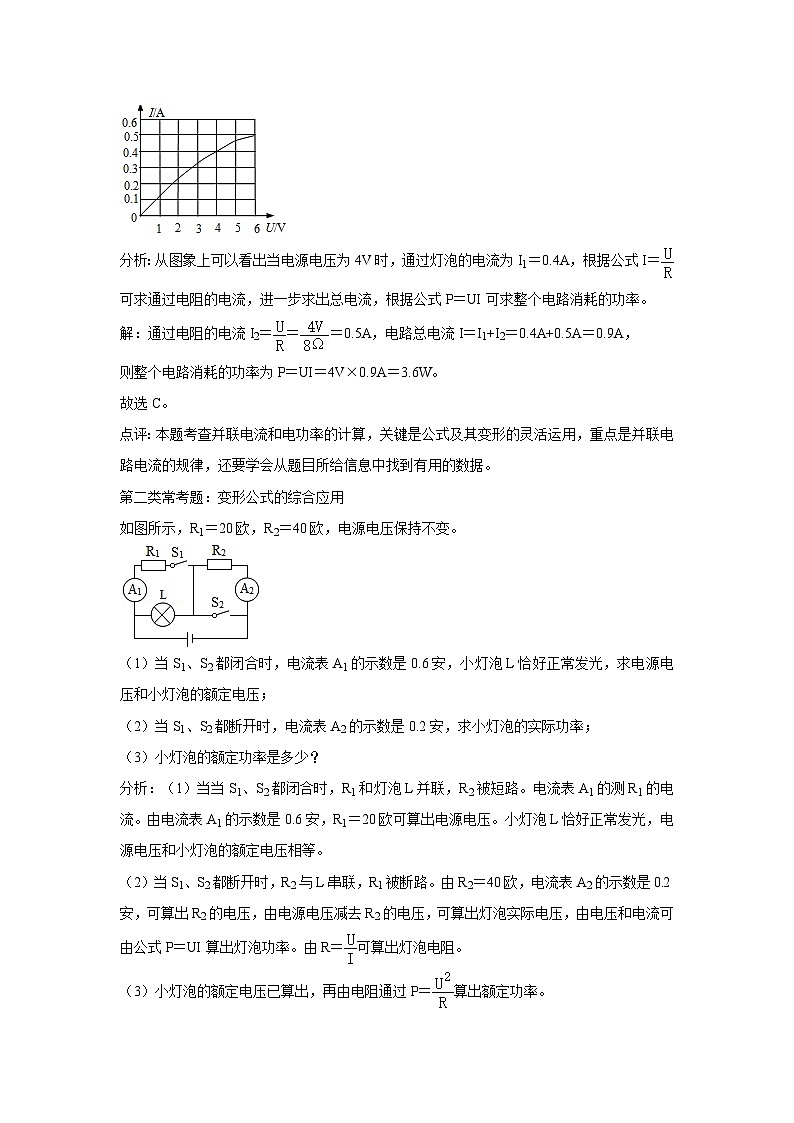 I/A
0.6
0.5
0.4
0.3
0.2
0.1
0
1 2 3 4 5 6 U/V
分析：从图象上可以看出当电源电压为 4V 时，通过灯泡的电流为 I₁＝0.4A，根据公式 I＝U/R
可求通过电阻的电流，进一步求出总电流，根据公式 P＝UI 可求整个电路消耗的功率。
解：通过电阻的电流 I₂＝U/R＝4V/8Ω＝0.5A，电路总电流 I＝I₁+I₂＝0.4A+0.5A＝0.9A，
则整个电路消耗的功率为 P＝UI＝4V×0.9A＝3.6W。
故选 C。
点评：本题考查并联电流和电功率的计算，关键是公式及其变形的灵活运用，重点是并联电
路电流的规律，还要学会从题目所给信息中找到有用的数据。
第二类常考题：变形公式的综合应用
如图所示，R₁＝20 欧，R₂＝40 欧，电源电压保持不变。
R₁ S₁ R₂
A₁ L S₂ A₂
（1）当 S₁、S₂ 都闭合时，电流表 A₁ 的示数是 0.6 安，小灯泡 L 恰好正常发光，求电源电
压和小灯泡的额定电压；
（2）当 S₁、S₂ 都断开时，电流表 A₂ 的示数是 0.2 安，求小灯泡的实际功率；
（3）小灯泡的额定功率是多少？
分析：（1）当当 S₁、S₂ 都闭合时，R₁ 和灯泡 L 并联，R₂ 被短路。电流表 A₁ 的测 R₁ 的电
流。由电流表 A₁ 的示数是 0.6 安，R₁＝20 欧可算出电源电压。小灯泡 L 恰好正常发光，电
源电压和小灯泡的额定电压相等。
（2）当 S₁、S₂ 都断开时，R₂ 与 L 串联，R₁ 被断路。由 R₂＝40 欧，电流表 A₂ 的示数是 0.2
安，可算出 R₂ 的电压，由电源电压减去 R₂ 的电压，可算出灯泡实际电压，由电压和电流可
由公式 P＝UI 算出灯泡功率。由 R＝U/I可算出灯泡电阻。
（3）小灯泡的额定电压已算出，再由电阻通过 P＝U²/R算出额定功率。